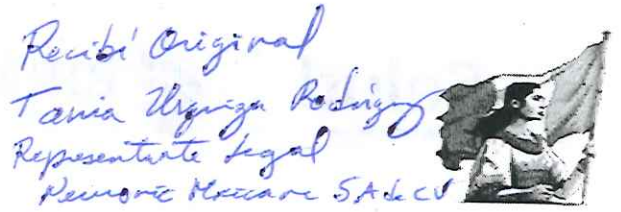 Recibí Original
Tania Urquiza Rodríguez
Representante Legal
Mexicana SA de CV